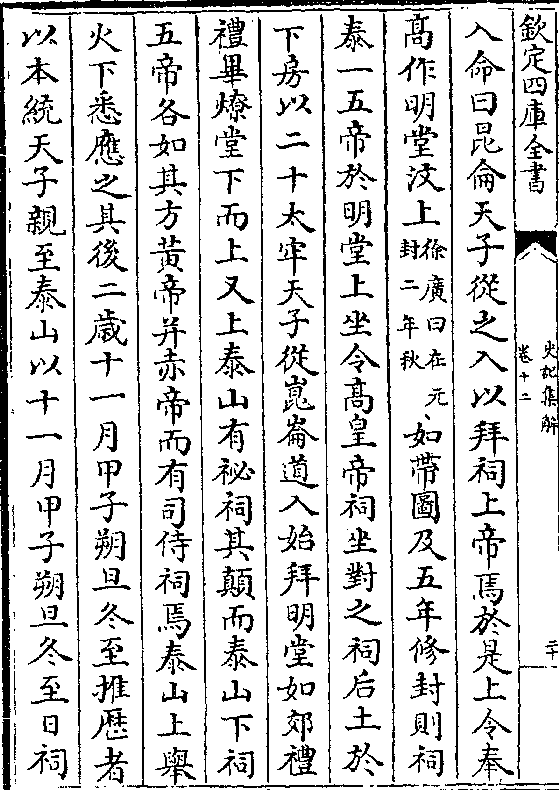 欽定四庫全書
史記集解
卷十二
二十
入命曰昆侖天子從之入以拜祠上帝焉於是上令奉
高作明堂汶上徐廣曰在元封二年秋、如帶圖及五年修封則祠
泰一五帝於明堂上坐令高皇帝祠坐對之祠后土於
下房以二十太牢天子從崑崙道入始拜明堂如郊禮
禮畢燎堂下而上又上泰山有祕祠其顛而泰山下祠
五帝各如其方黄帝并赤帝而有司侍祠焉泰山上舉
火下悉應之其後二歳十一月甲子朔旦冬至推歴者
以本統天子親至泰山以十一月甲子朔旦冬至日祠